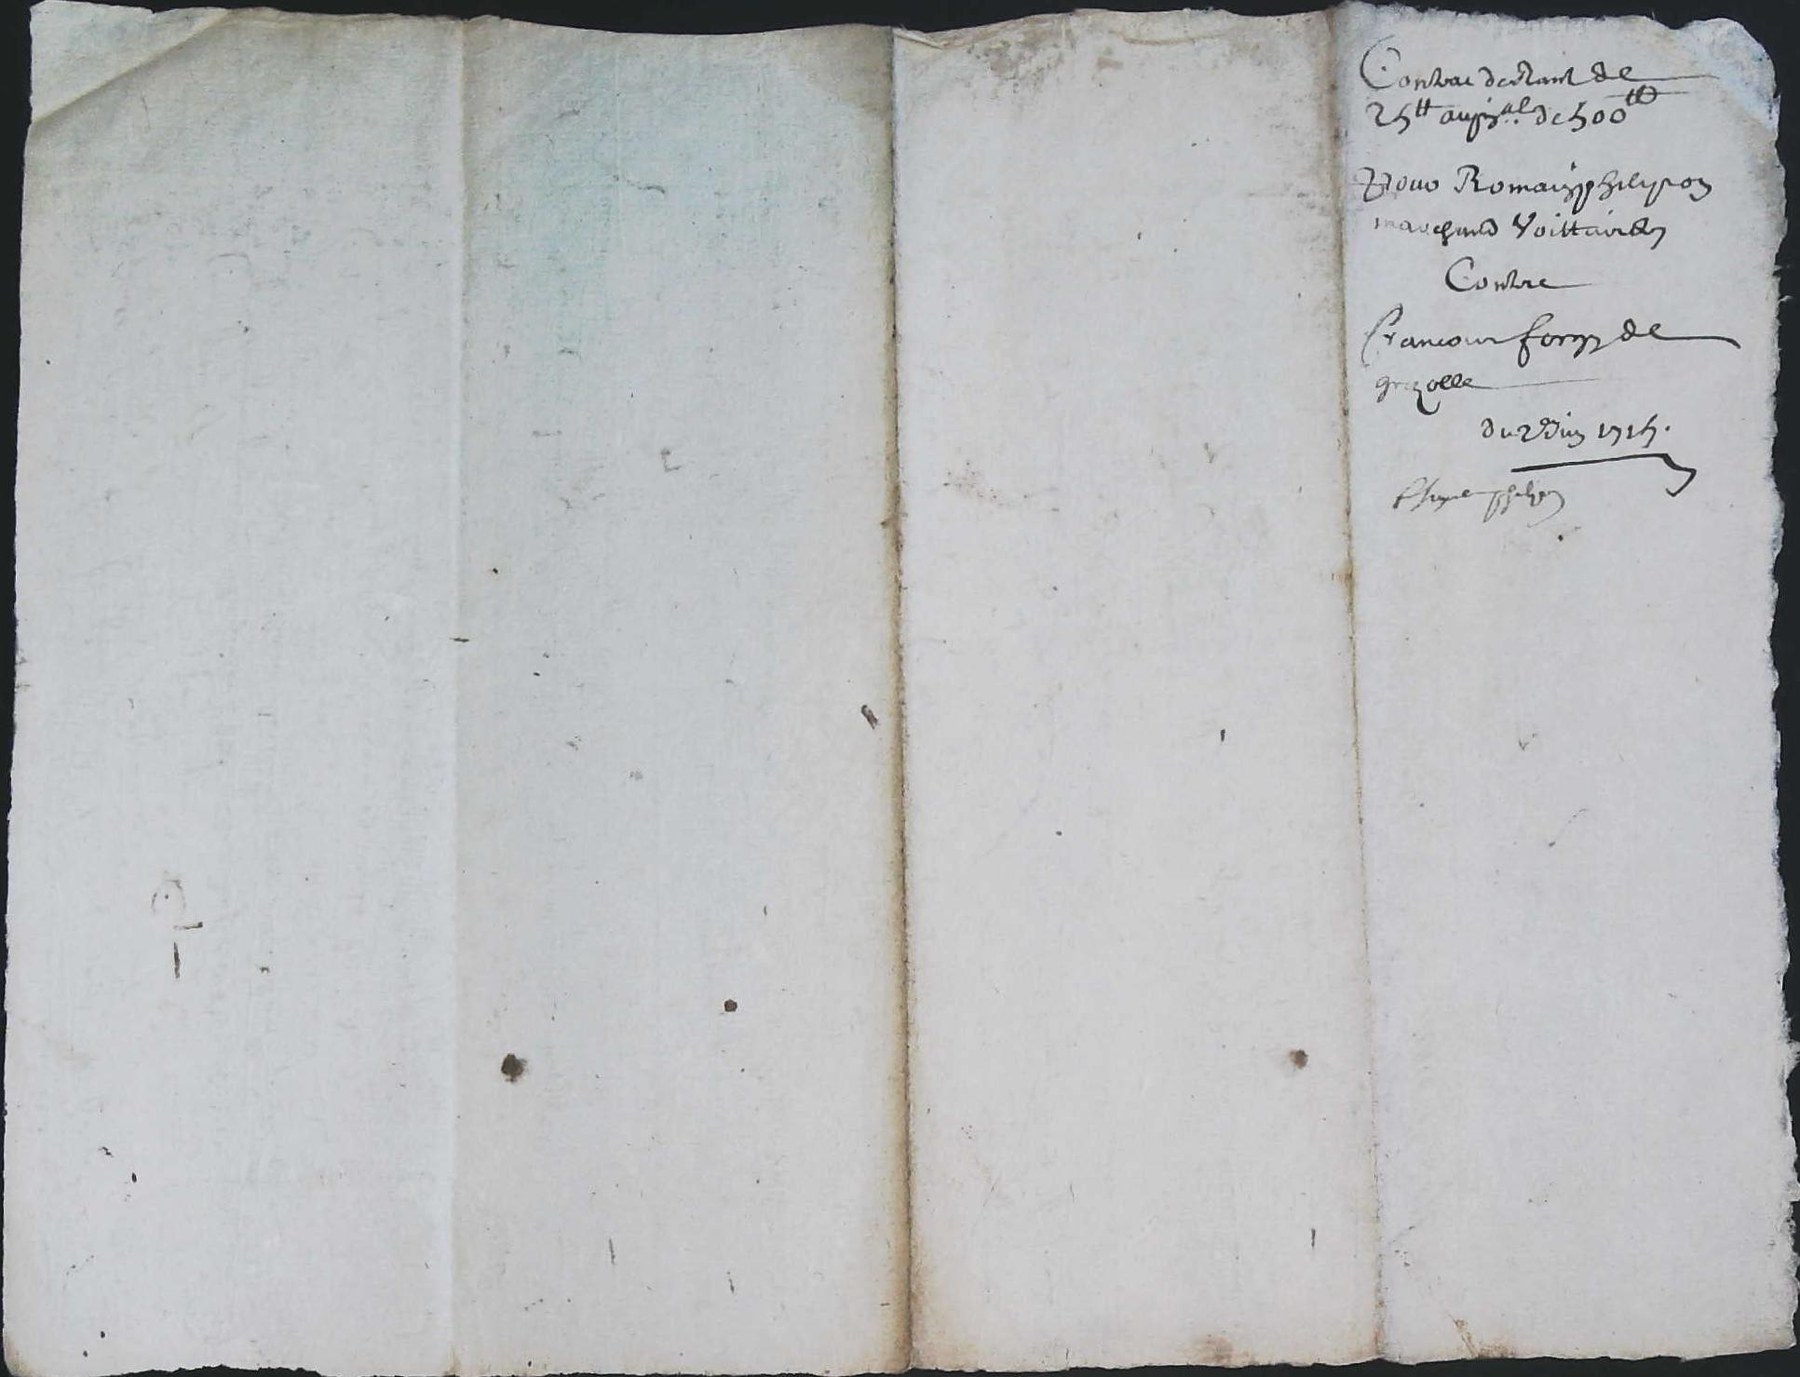 Contrac de Rant de
25tt au pn.al de 500tt
pour Romain philipon
marchand Voitturier
Contre
francois fory de
grizolle
du 2e Juin 1715.
philipon